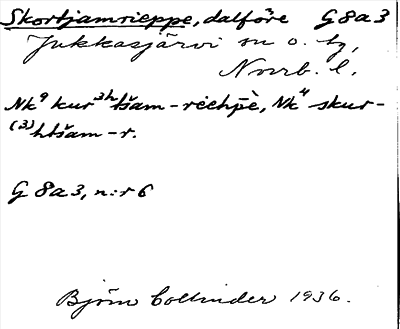 Skortjamrieppe, dalföre G 8 a 3
Jukkasjärvi sn o. tg,
Norrb. l.
Nk⁹ kur³ʰtšam-rèèhpè, Nk⁴ skur-
⁽³⁾htšam-r.
G 8a3, n:r 6
Björn Collinder 1936.